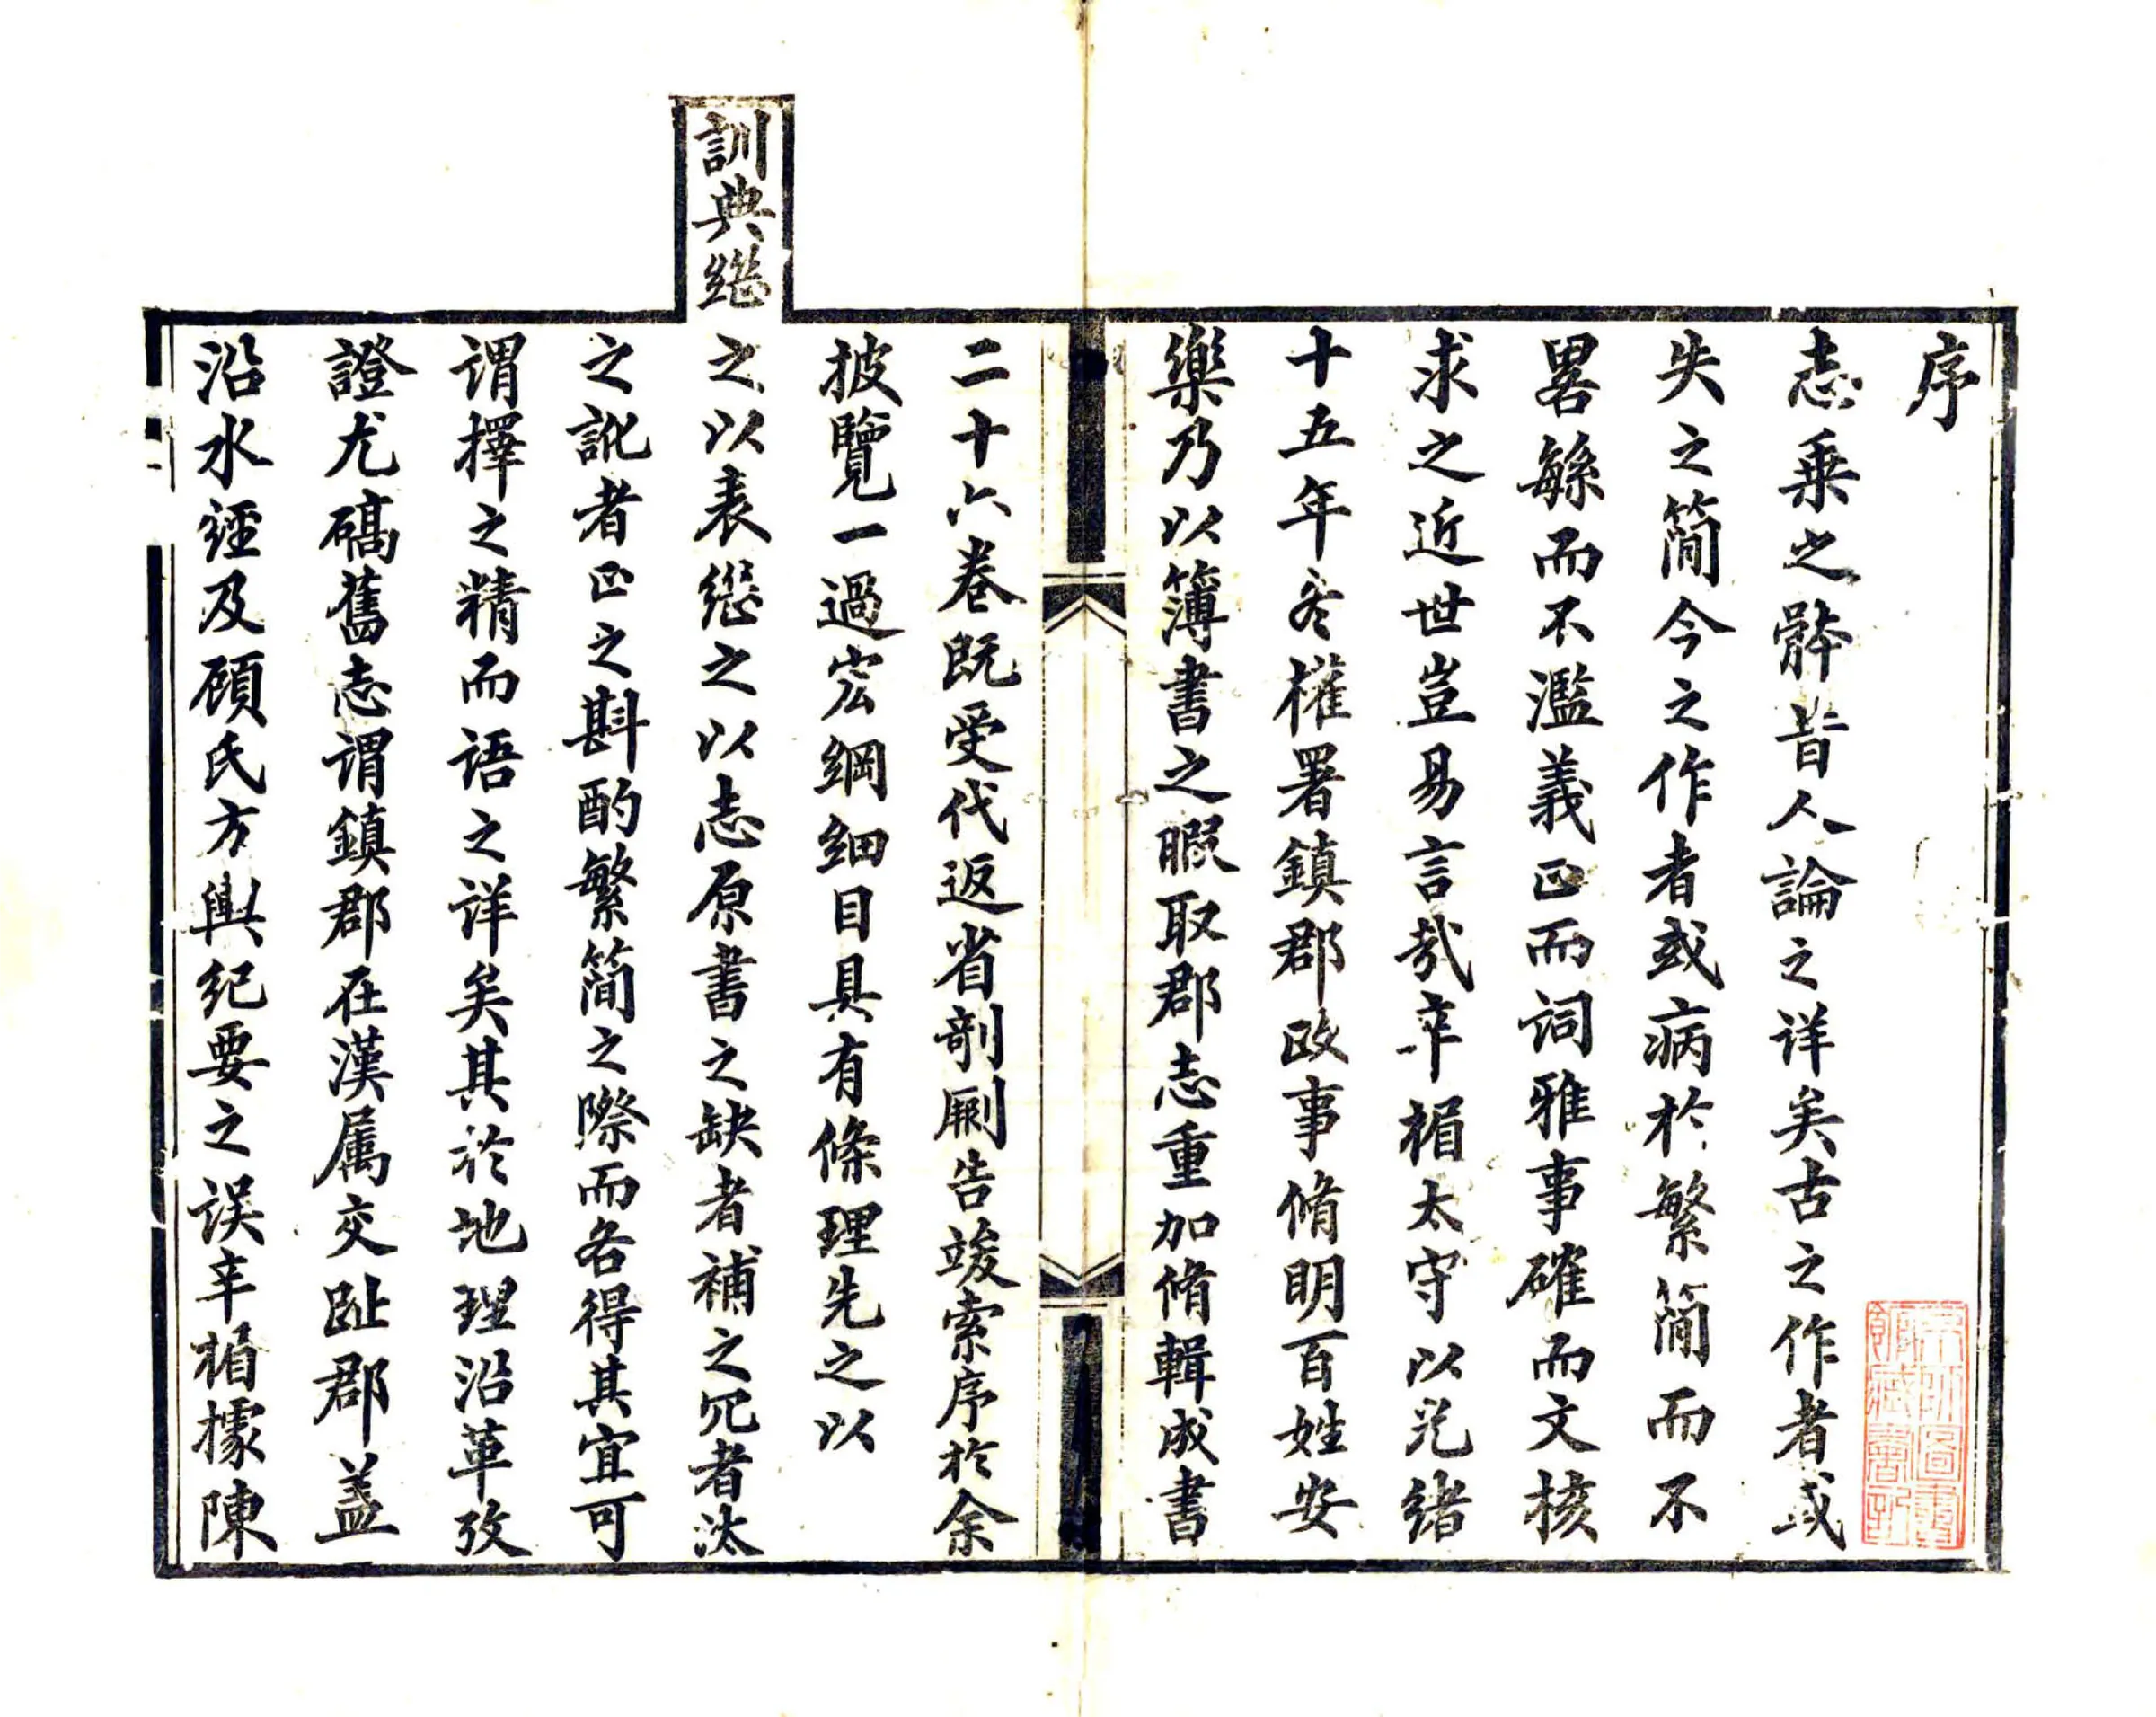 序
志乘之骵昔人論之详矣古之作者或
失之简今之作者或病於繁简而不
畧緐而不濫義正而词雅事確而文核
求之近世豈易言哉辛楣太守以光绪
十五年冬權署鎮郡政事脩明百姓安
樂乃以簿書之暇取郡志重加脩輯成書
二十六卷既受代返省剞劂告竣索序於余
披覽一過宏綱细目具有條理先之以
訓典继之以表继之以志原書之缺者補之冗者汰
之訛者正之斟酌繁简之際而各得其宜可
谓擇之精而语之详矣其於地理沿革攷
證尤碻舊志谓鎮郡在漢属交趾郡盖
沿水經及顾氏方輿纪要之误辛楣據陳